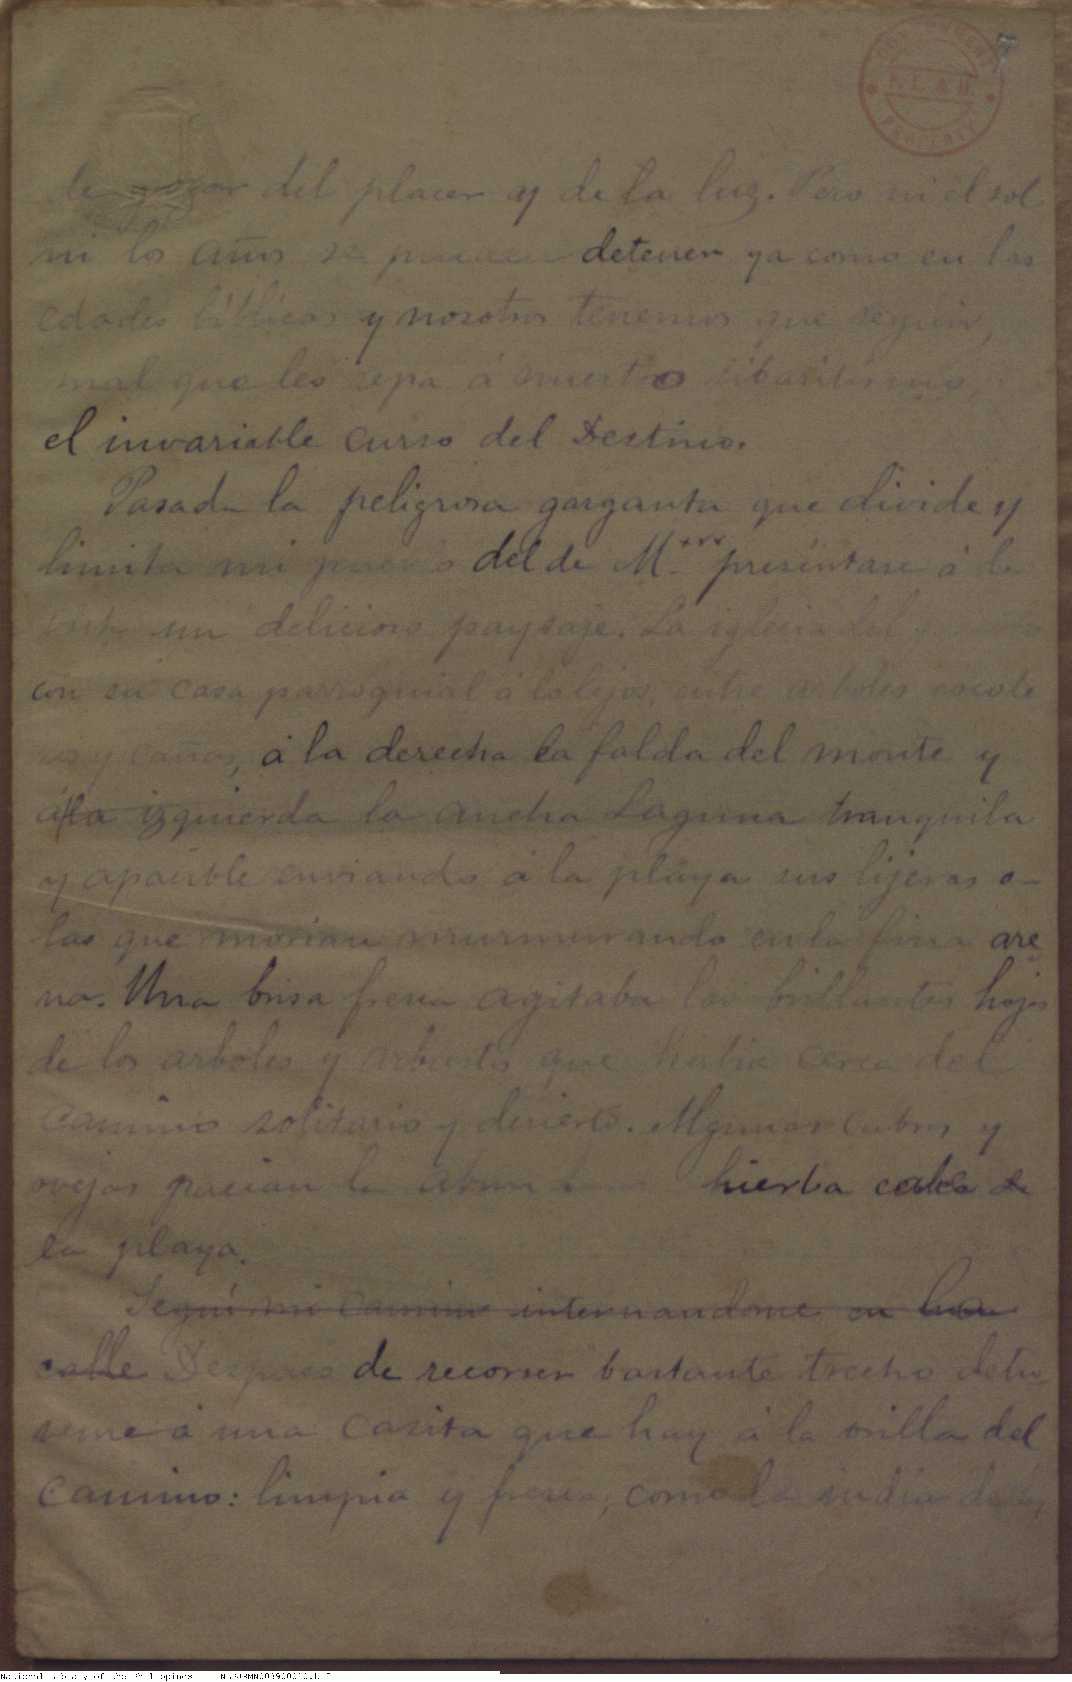 de gozar del placer y de la luz. Pero ni el sol
ni los años se pueden detener ya como en las
edades bíblicas y nosotros tenemos que seguir,
mal que les sepa á nuestro sibaritismo,
el invariable curso del Destino.
Pasada la peligrosa garganta que divide y
limita mi pueblo del de M*** preséntase á la
vista un delicioso paysaje. La iglesia del pueblo
con su casa parroquial á lo lejos, entre arboles cocote
ros y cañas, á la derecha la falda del monte y
á la izquierda la ancha Laguna tranquila
y apacible enviando á la playa sus lijeras o-
las que morian murmurando en la fina are
na. Una brisa fresca agitaba las brillantes hojas
de los arboles y arbustos que habia cerca del
camino solitario y desierto. Algunas cabras y
ovejas pacian la hierba cerca de
la playa.
Seguí mi camino internandome en
calle Despues de recorrer bastante trecho detu
veme á una casita que hay á la orilla del
camino: limpia y fresca, como la india
COPYRIGHT
P. L. & M.
PROPERTY
7
National Library of the Philippines